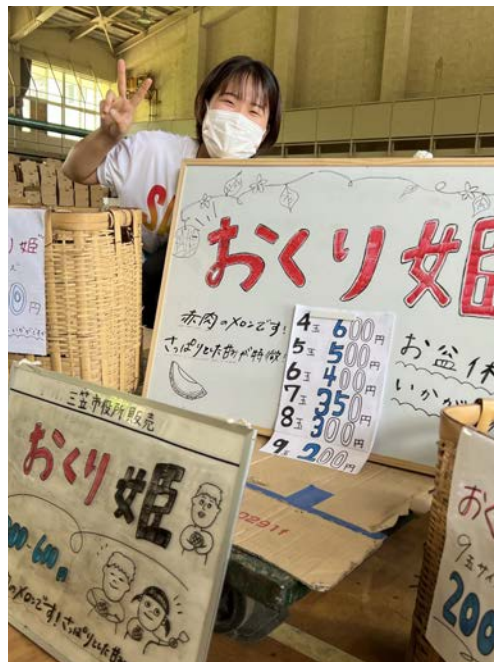 おくり姫
赤肉のメロンです!
さっぱりとした甘みが特徴
4玉 600円
5玉 500円
6玉 400円
7玉 350円
8玉 300円
9玉 200円
お盆休
いかが
り姫
0円
三笠市役所販売
おくり姫
600円
肉のメロンです!さっぱりとした甘
0291f
9玉サイ
200